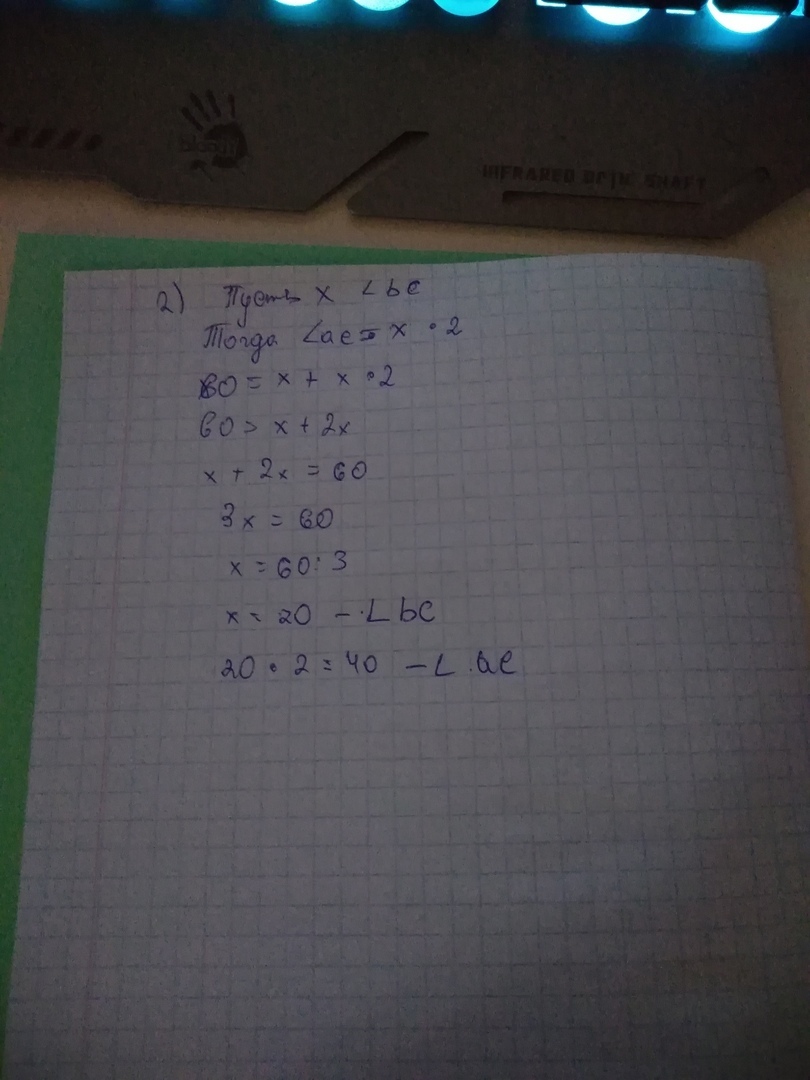 bloody
INFRARED OPTIC SHAFT
2) Пусть x ∠bc
Тогда ∠ac = x • 2
60 = x + x • 2
60 = x + 2x
x + 2x = 60
3x = 60
x = 60 : 3
x = 20 - ∠bc
20 • 2 = 40 - ∠ac